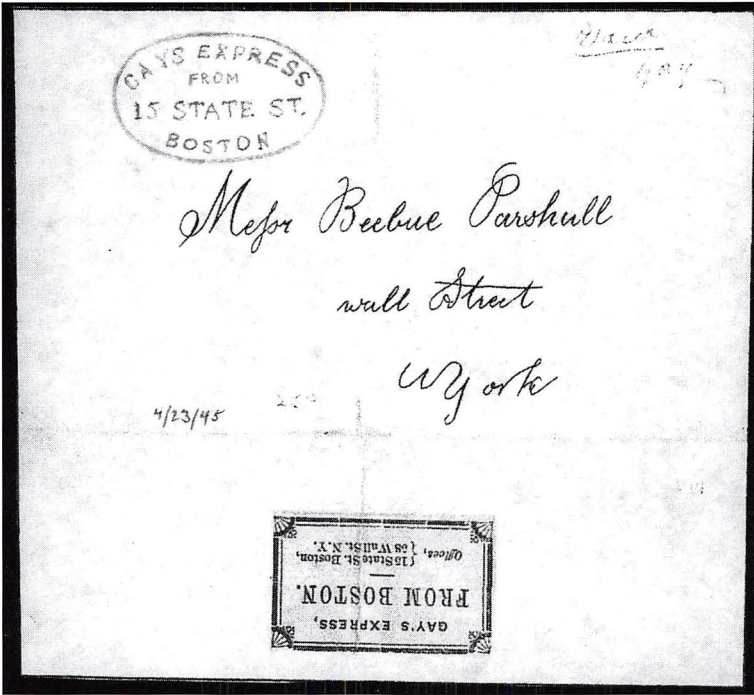 GAYS EXPRESS
FROM
15 STATE ST.
BOSTON
Messr Beebue Parshull
wall Street
NYork
4/23/45
GAY'S EXPRESS,
FROM BOSTON.
Offices, { 15 State St. Boston,
58 Wall St. N.Y.